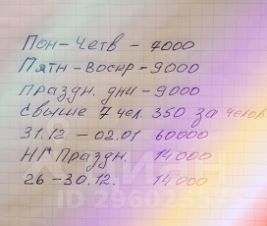 Пон-Четв - 7000
Пятн-Воскр - 9000
Праздн. дни - 9000
свыше 7 чел. 350 за челов
31.12 - 02.01 60000
НГ Праздн. 14.000
26 - 30.12. 14000
ID 296025375